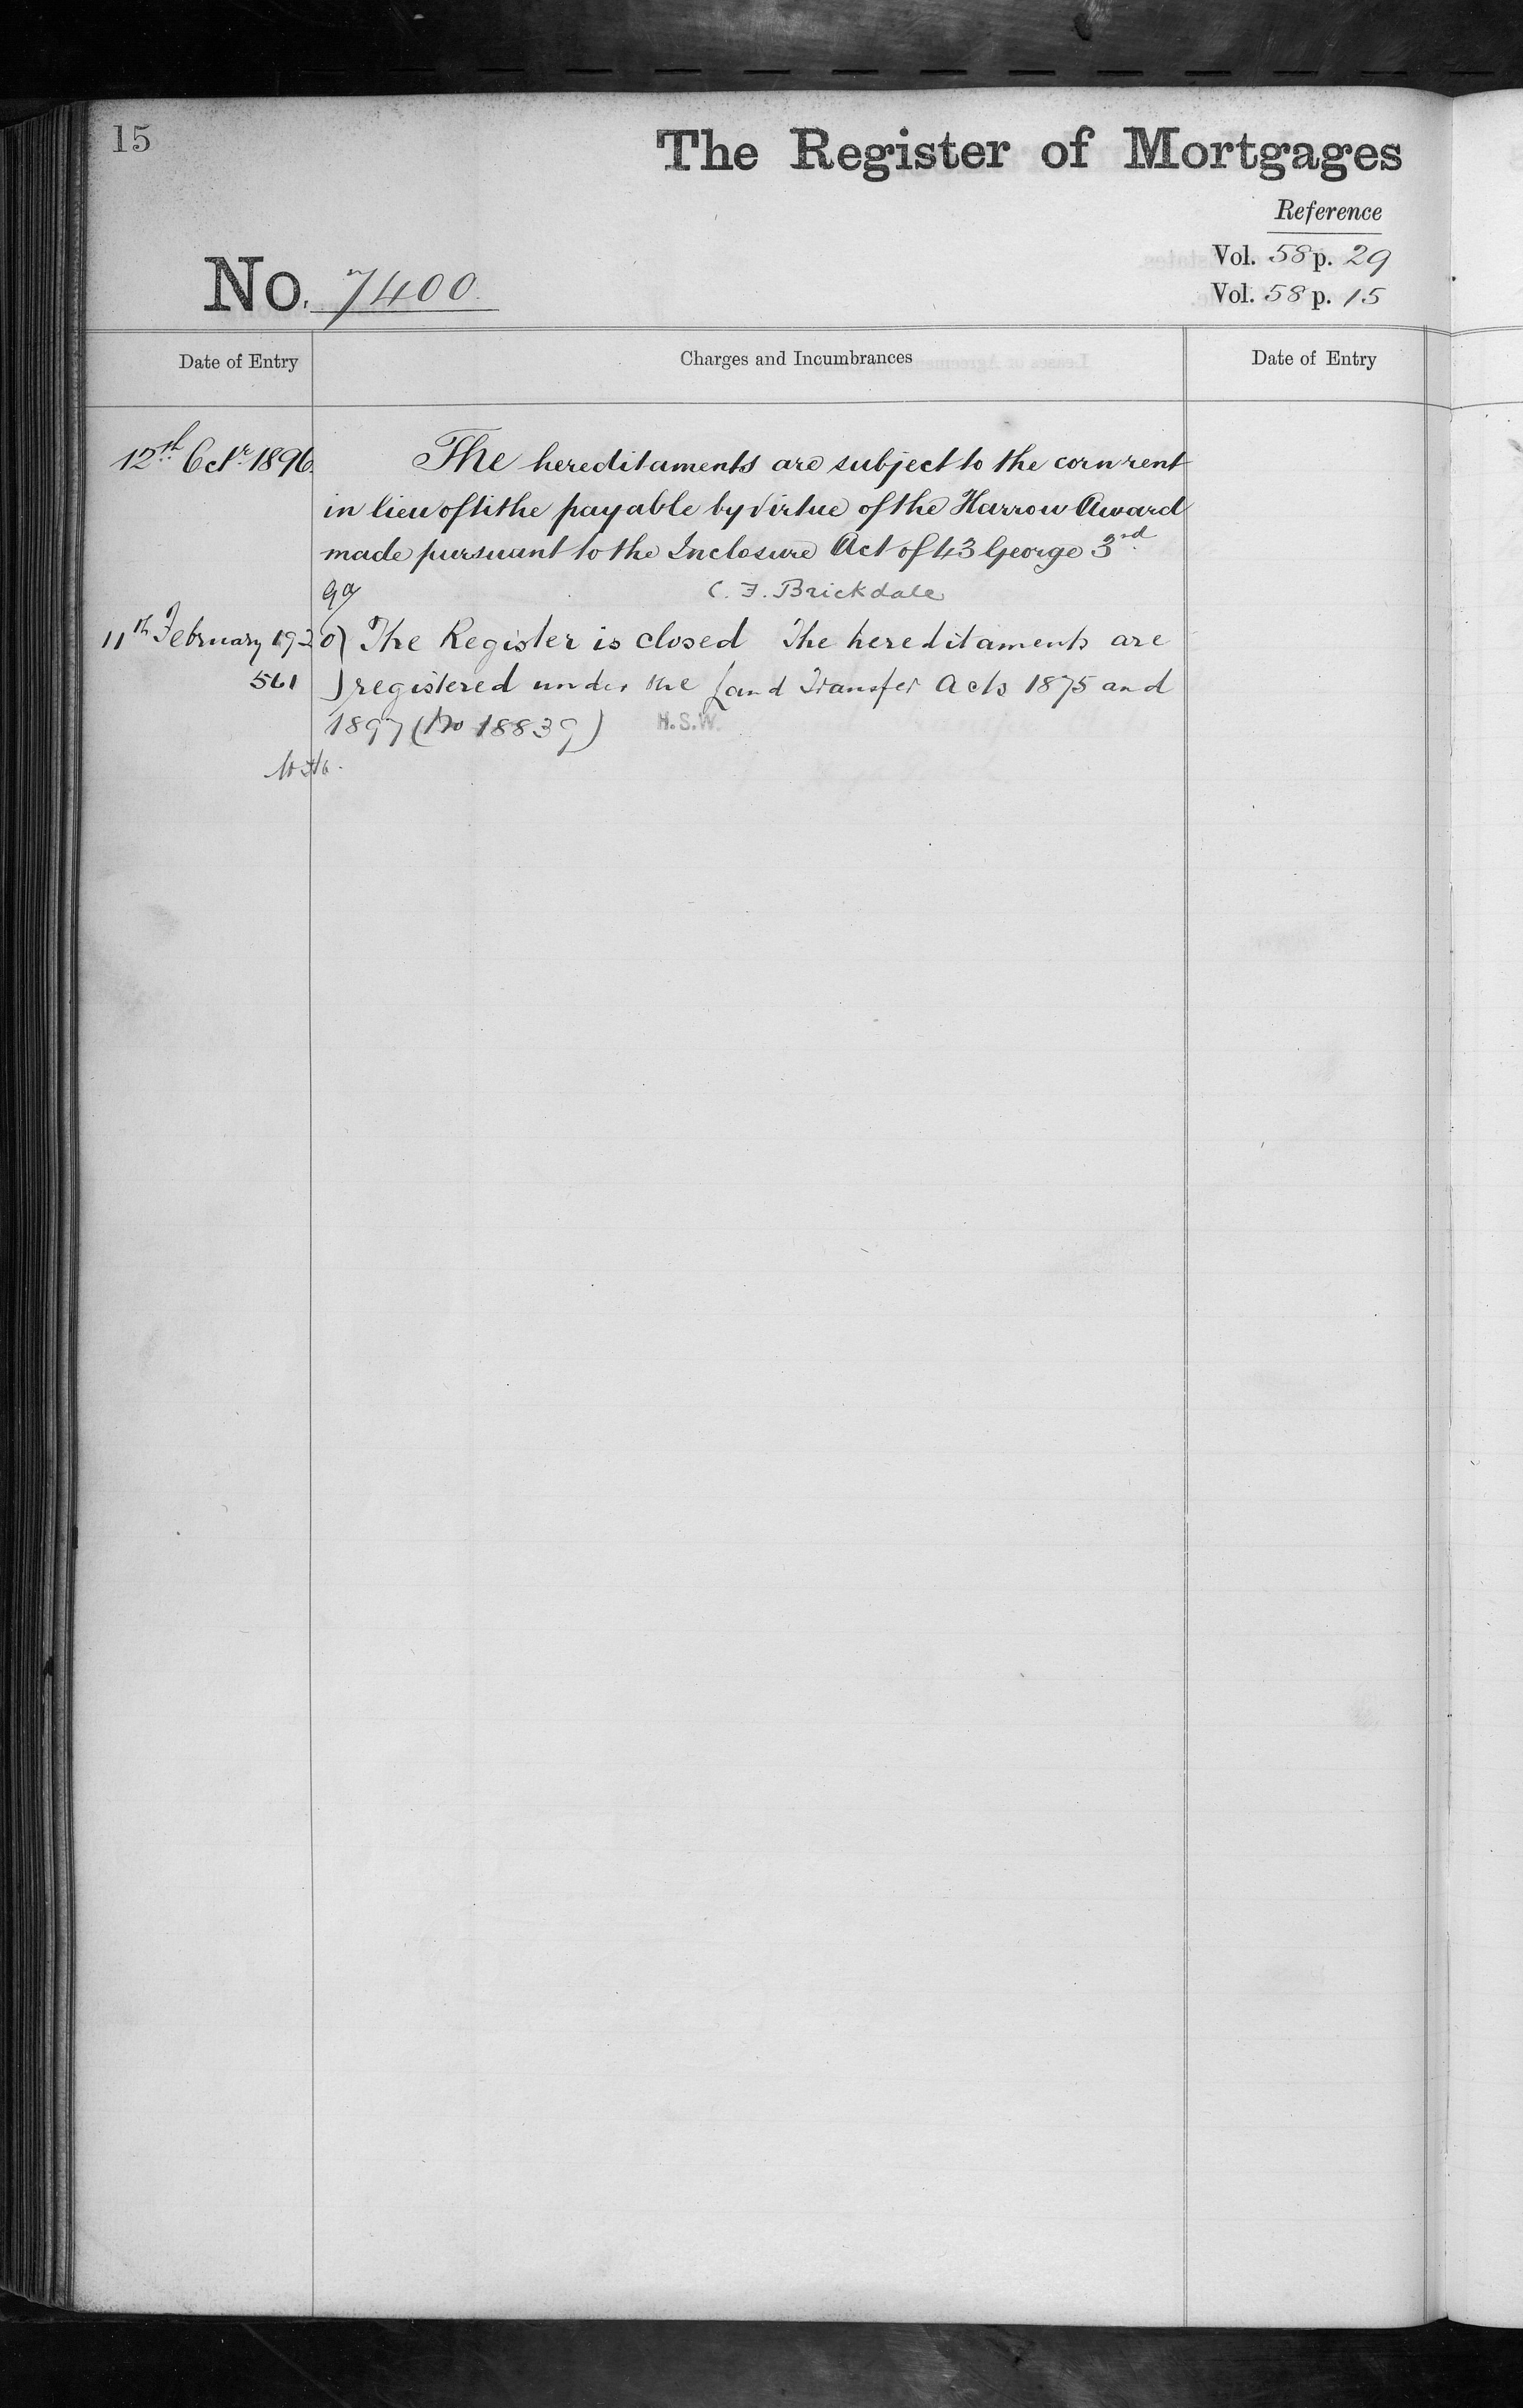 15
The Register of Mortgages
Reference
Vol. 58 p. 29
Vol. 58 p. 15
No. 7400
Date of Entry
Charges and Incumbrances
Date of Entry
12th Octr. 1896. The hereditaments are subject to the corn rent
in lieu of tithe payable by virtue of the Harrow Award
made pursuant to the Inclosure Act of 43 George 3rd.
C. F. Brickdale
11th February 1920) The Register is closed The hereditaments are
561 ) registered under the Land Transfer Acts 1875 and
1897 (No 18839) H.S.W.